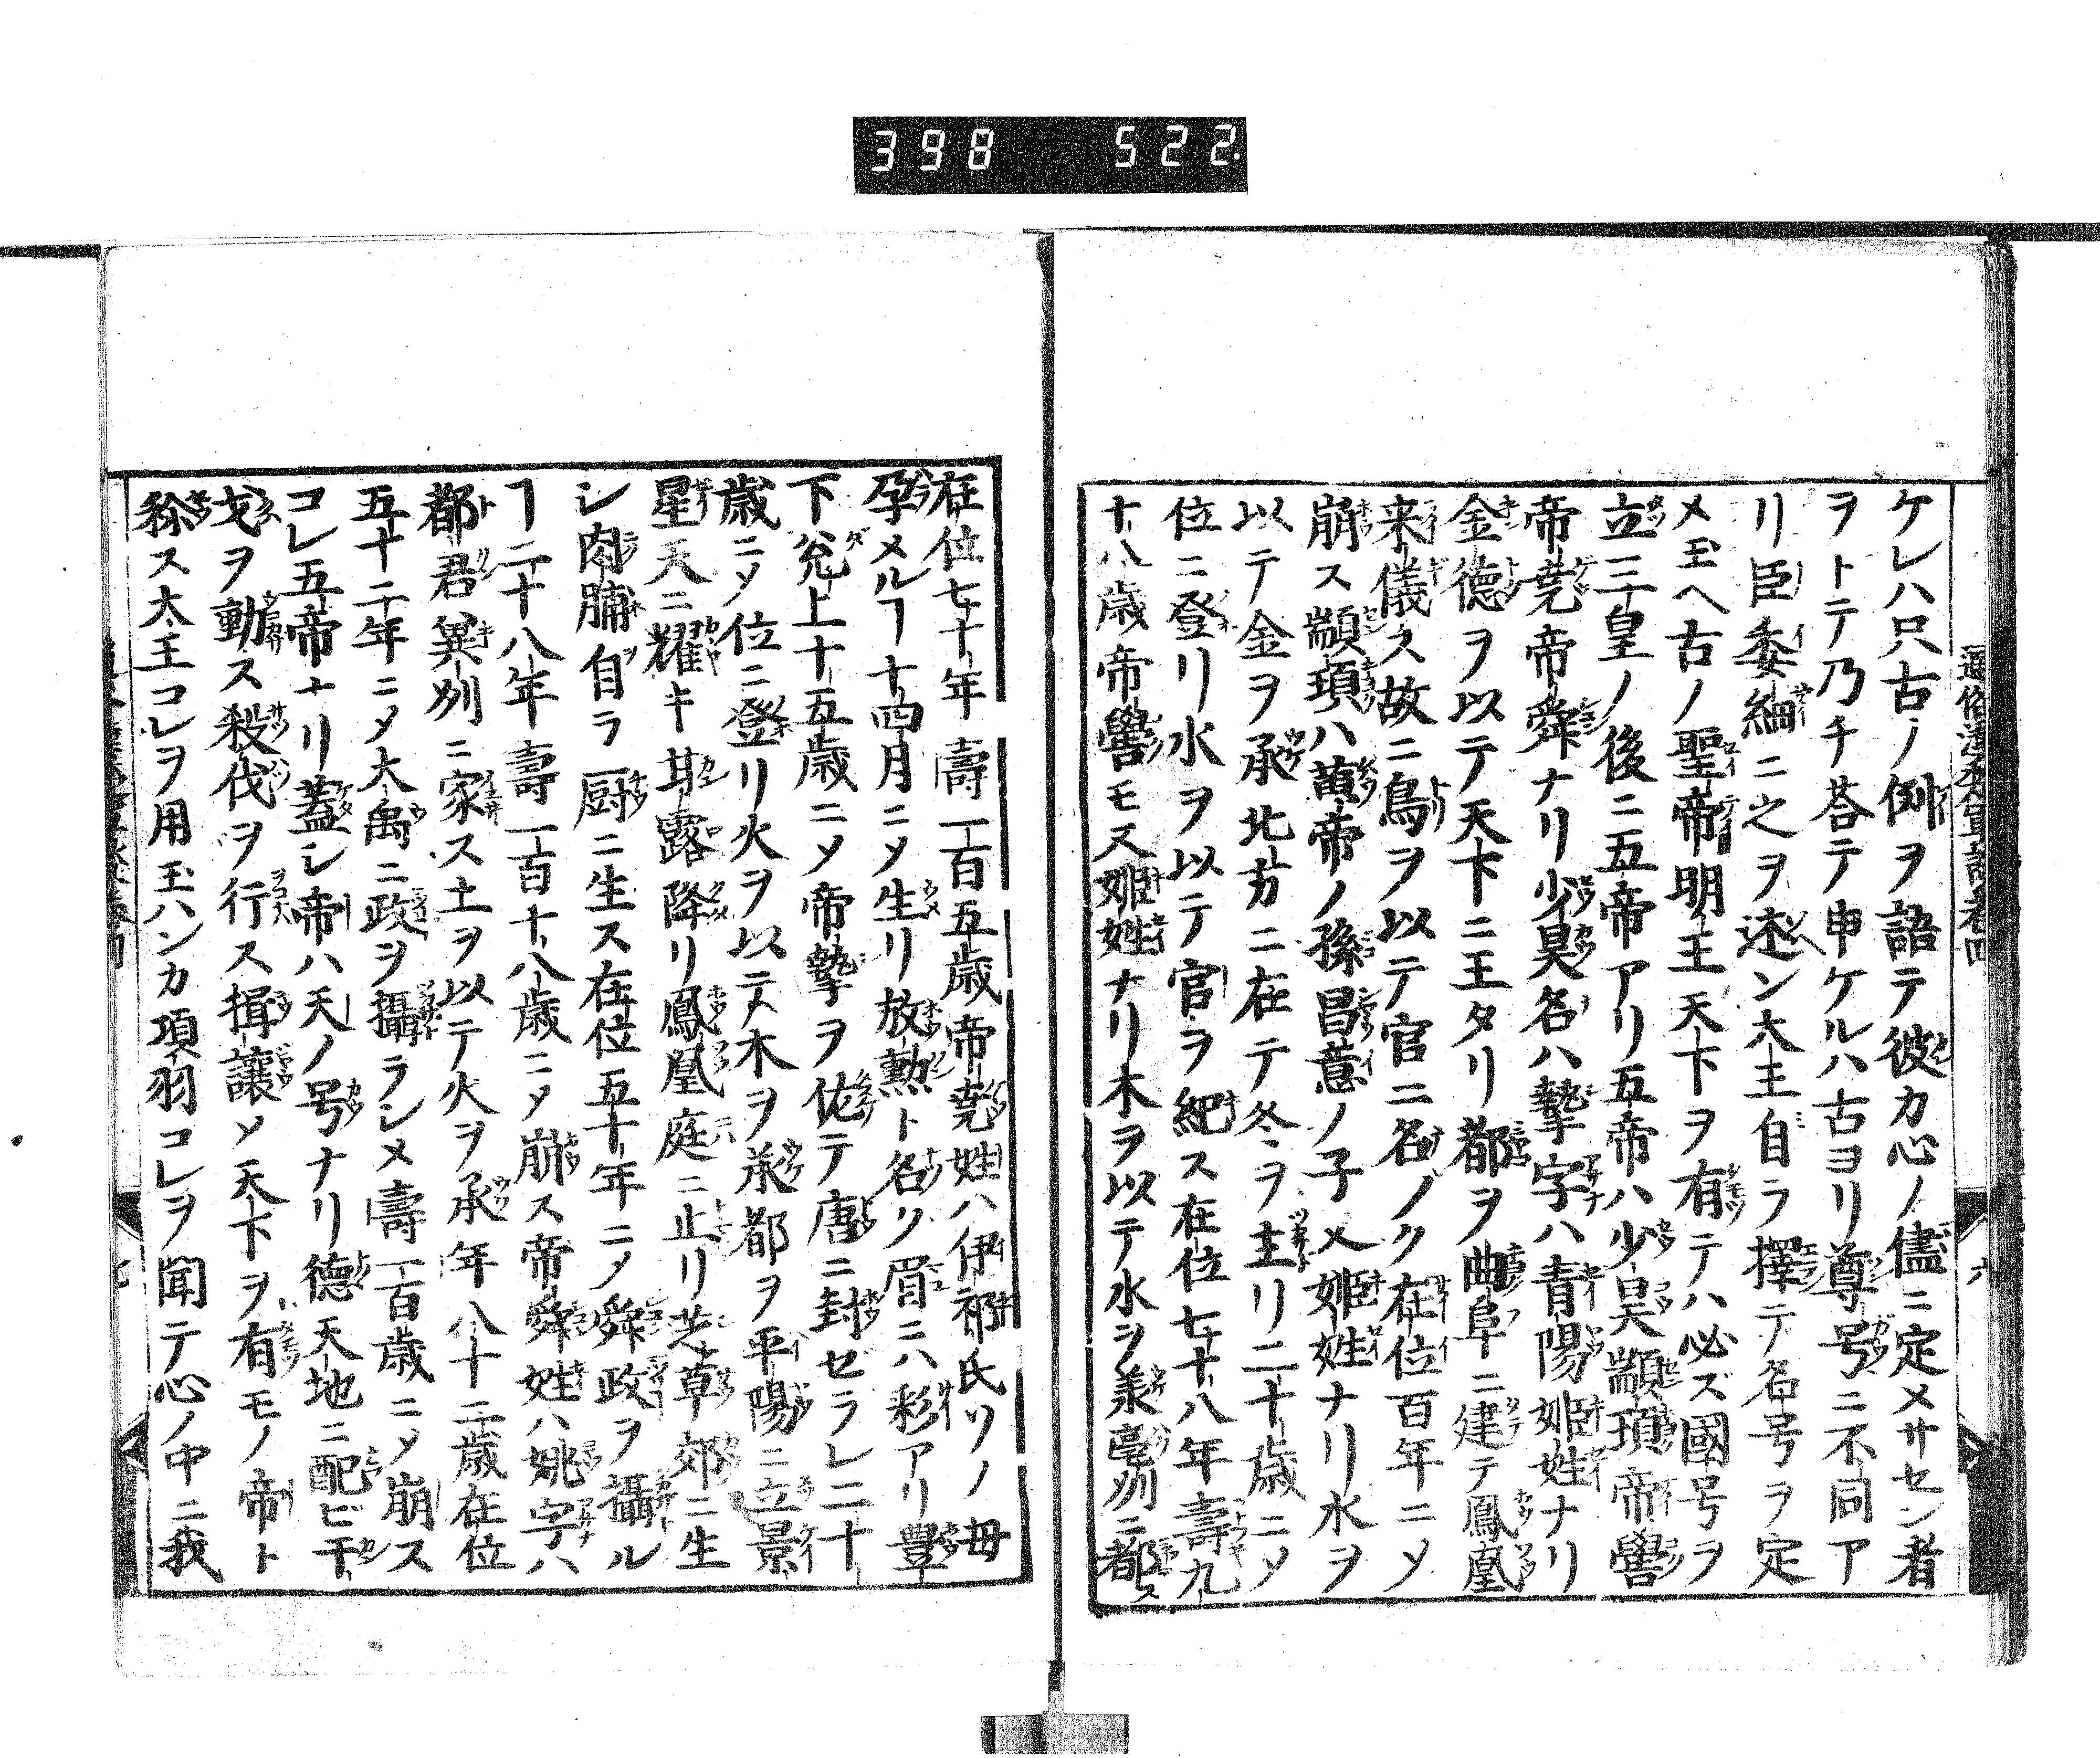 398 522.
通俗漢楚軍談卷四
六
ケレハ只古ノ例ヲ語テ彼カ心ノ儘ニ定メサセン者
ヲトテ乃チ荅テ申ケルハ古ヨリ尊号ニ不同ア
リ臣委細ニ之ヲ述ン大王自ラ擇テ名号ヲ定
メ玉ヘ古ノ聖帝明王天下ヲ有テハ必ズ國号ヲ
立三皇ノ後ニ五帝アリ五帝ハ少昊顓頊帝嚳
帝堯帝舜ナリ少昊名ハ摯字ハ青陽姫姓ナリ
金德ヲ以テ天下ニ王タリ都ヲ曲阜ニ建テ鳳凰
来儀ス故ニ鳥ヲ以テ官ニ名ノク在位百年ニメ
崩ス顓頊ハ黄帝ノ孫昌意ノ子又姫姓ナリ水ヲ
以テ金ヲ承北方ニ在テ冬ヲ主リ二十歳ニメ
位ニ登リ水ヲ以テ官ヲ紀ス在位七十八年壽九
十八歳帝嚳モ又姫姓ナリ木ヲ以テ水ヲ承亳州ニ都ス
在位七十年壽一百五歳帝堯姓ハ伊祁氏ソノ母
孕メルヿ十四月ニメ生リ放勲ト名ク眉ニハ彩アリ豐
下兊上十五歳ニメ帝摯ヲ佐テ唐ニ封セラレ二十
歳ニメ位ニ登リ火ヲ以テ木ヲ承都ヲ平陽ニ立景
星天ニ耀キ甘露降リ鳳凰庭ニ止リ芝草郊ニ生
シ肉脯自ラ厨ニ生ス在位五十年ニメ舜政ヲ攝ル
ヿ二十八年壽一百十八歳ニメ崩ス帝舜姓ハ姚字ハ
都君兾州ニ家ス土ヲ以テ火ヲ承年八十二歳在位
五十二年ニメ大禹ニ政ヲ攝ラシメ壽一百歳ニメ崩ス
コレ五帝ナリ蓋シ帝ハ天ノ号ナリ德天地ニ配ヒ干
戈ヲ動ス殺伐ヲ行ス揖讓メ天下ヲ有モノ帝ト
称ス大王コレヲ用玉ハンカ項羽コレヲ聞テ心ノ中ニ我
七